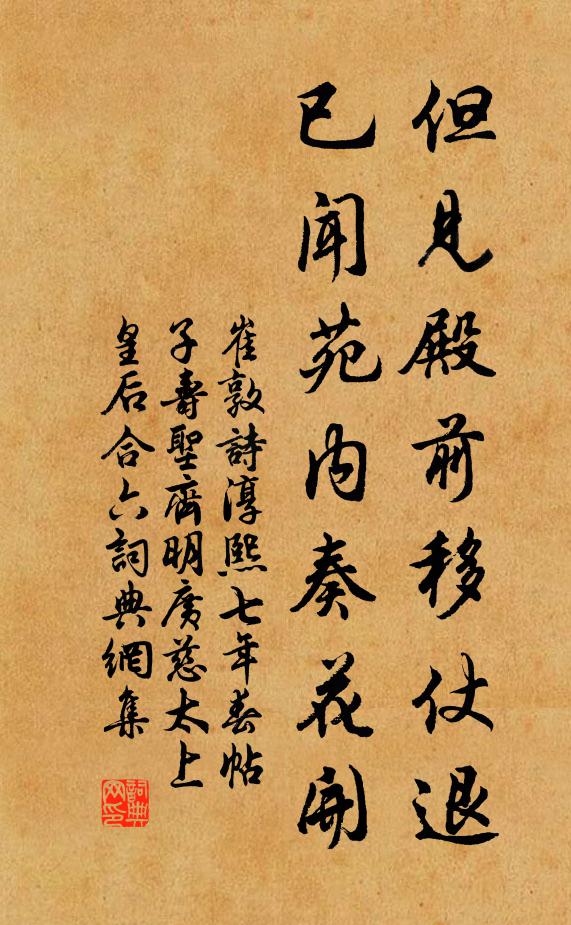 但見殿前移仗退
已聞苑内奏花開
崔敦詩淳熙七年春帖
子壽聖齊明廣慈太上
皇后合六詞典網集
詞典網印